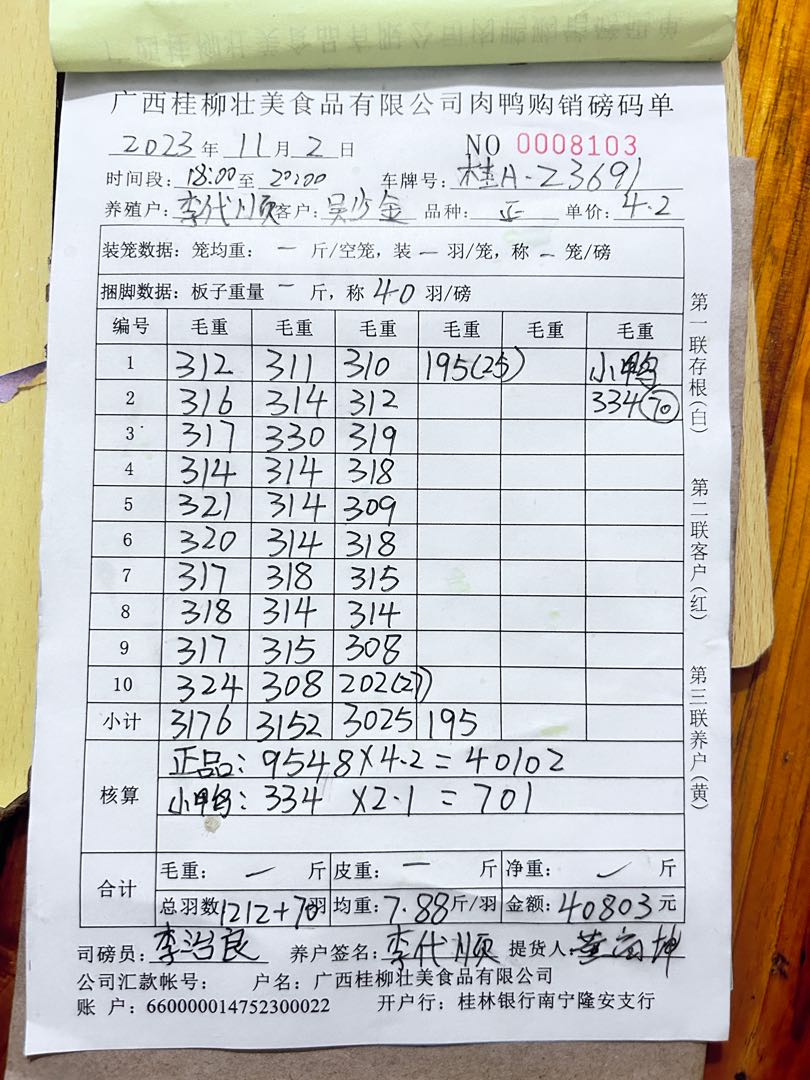 广西桂柳壮美食品有限公司肉鸭购销磅码单
2023年 11月 2日 NO 0008103
时间段: 18:00至 20:00 车牌号: 桂A-23691
养殖户: 李代顺 客户: 吴少金 品种: 正 单价: 4.2
装笼数据: 笼均重: 一 斤/空笼, 装 一 羽/笼, 称 一 笼/磅
捆脚数据: 板子重量 一 斤, 称 40 羽/磅
编号 毛重 毛重 毛重 毛重 毛重 毛重
1 312 311 310 195(25) 小鸭
2 316 314 312 334(70)
3 317 330 319
4 314 314 318
5 321 314 309
6 320 314 318
7 317 318 315
8 318 314 314
9 317 315 308
10 324 308 202(27)
小计 3176 3152 3025 195
核算
正品: 9548×4.2=40102
小鸭: 334 ×2.1 =701
合计
毛重: 一 斤 皮重: 一 斤 净重: 一 斤
总羽数 1212+70羽 均重: 7.88斤/羽 金额: 40803元
司磅员: 李治良 养户签名: 李代顺 提货人:
公司汇款帐号: 户名: 广西桂柳壮美食品有限公司
账 户: 660000014752300022 开户行: 桂林银行南宁隆安支行
第一联存根(白)
第二联客户(红)
第三联养户(黄)